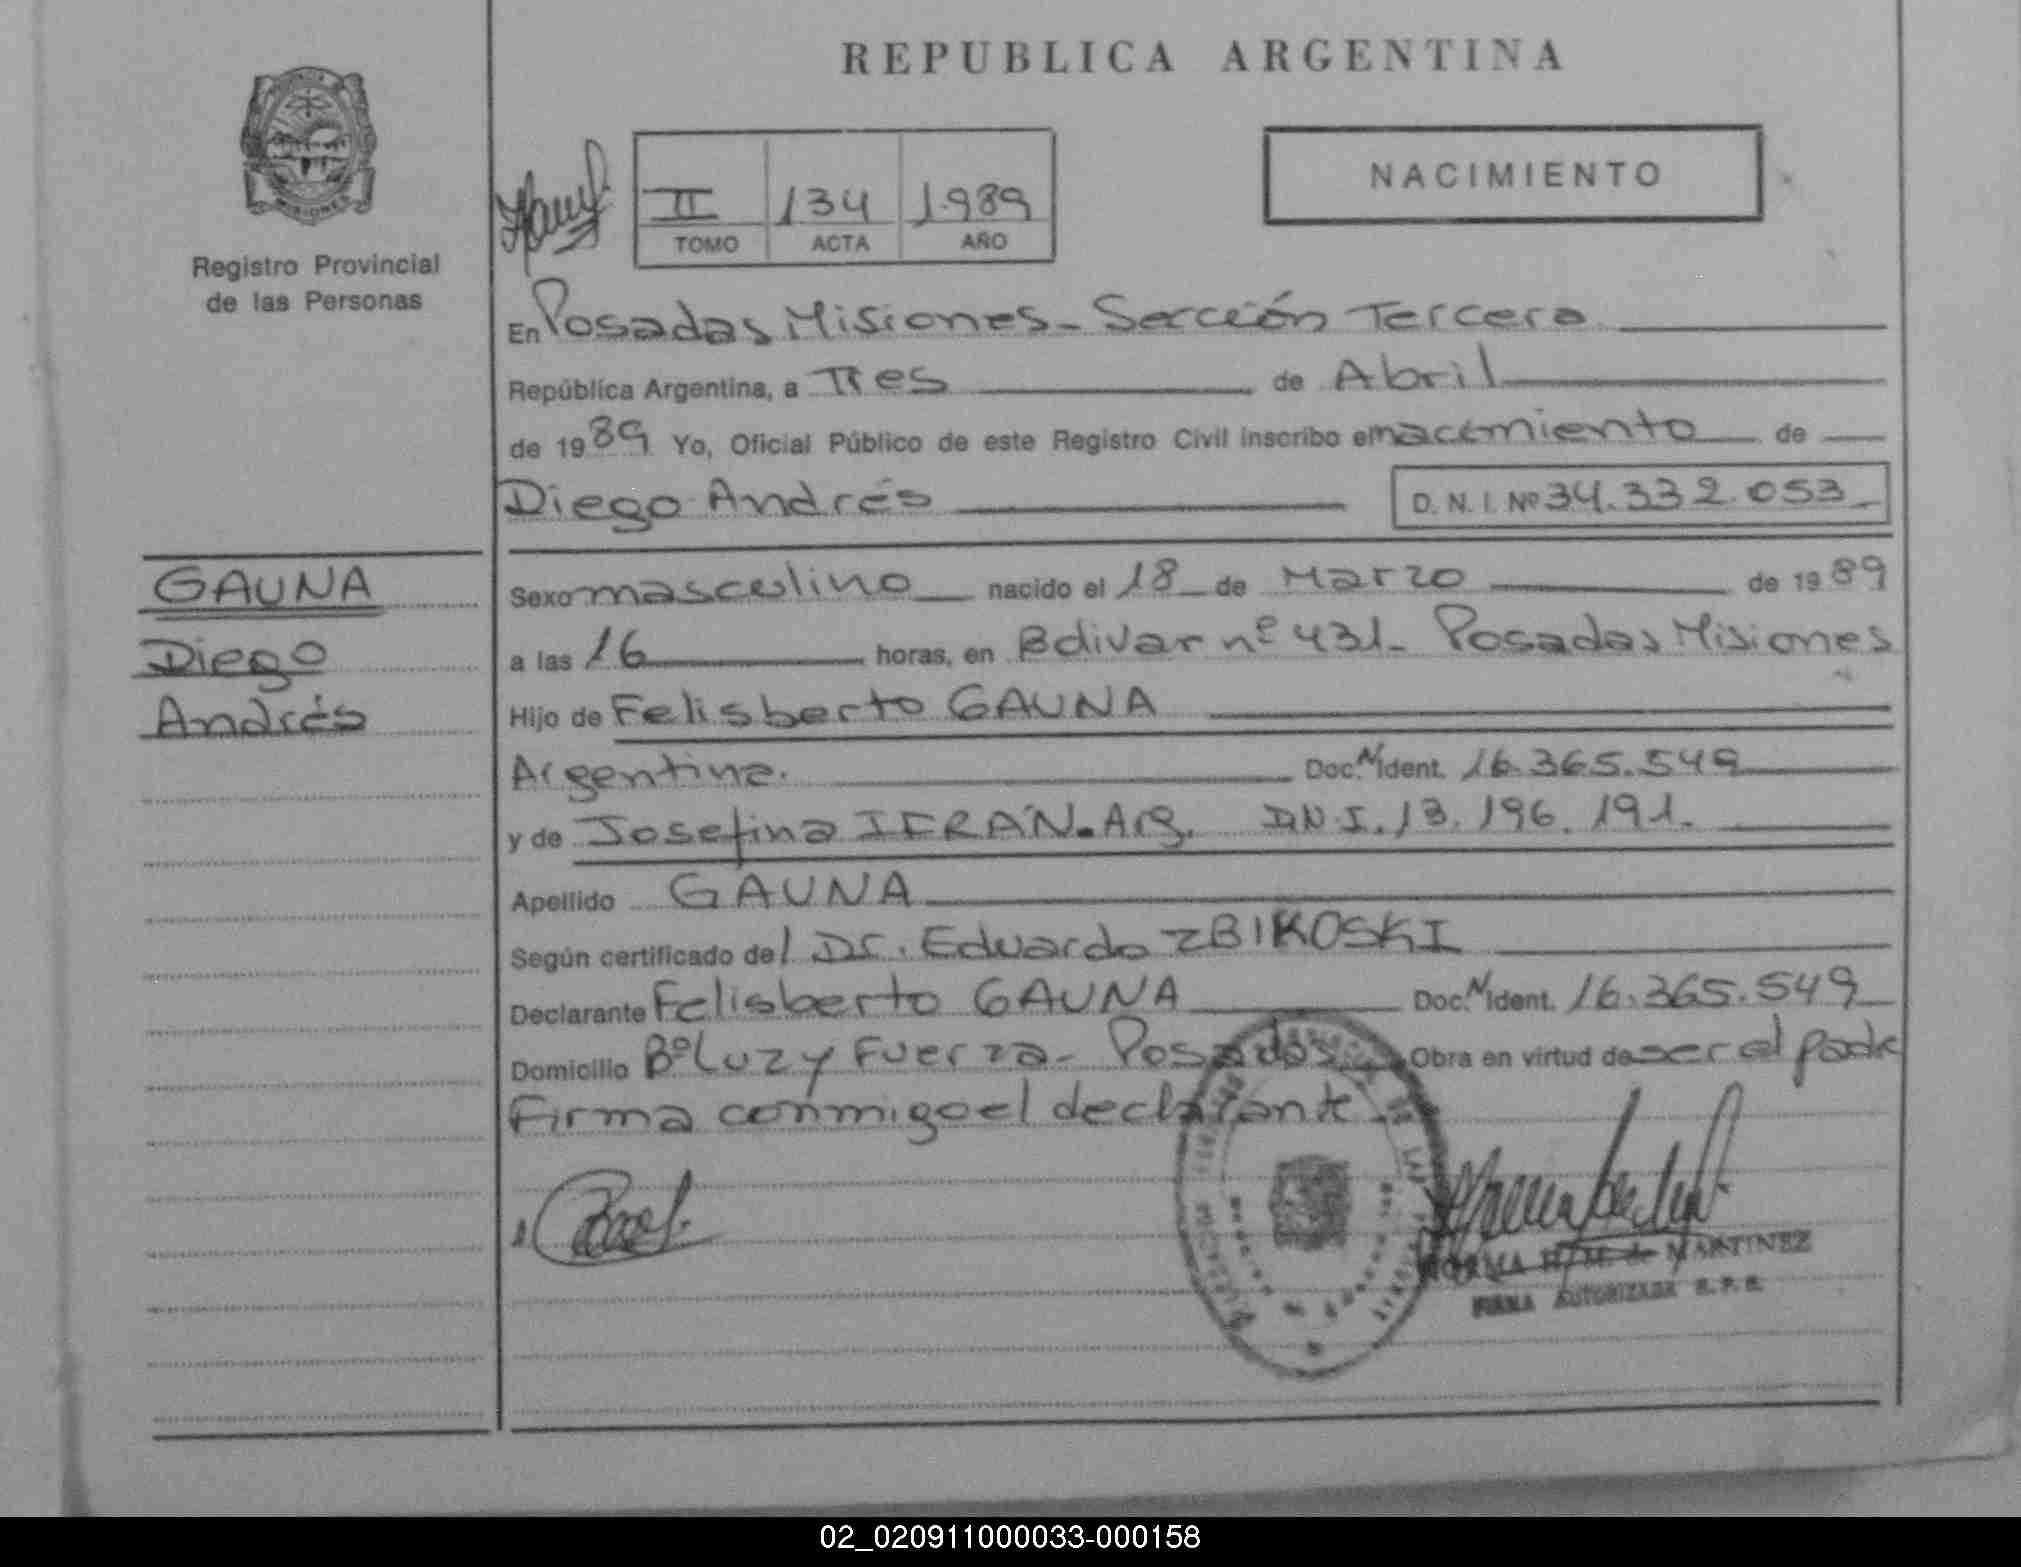 REPUBLICA ARGENTINA
NACIMIENTO
II 134 1989
TOMO ACTA AÑO
MISIONES
Registro Provincial
de las Personas
En Posadas Misiones - Sección Tercera
República Argentina, a Tres de Abril
de 1989 Yo, Oficial Público de este Registro Civil inscribo el nacimiento de
Diego Andrés D. N. I. Nº 34.332.053
GAUNA
Diego
Andrés
Sexo masculino nacido el 18 de Marzo de 1989
a las 16 horas, en Bolivar nº 431 - Posadas Misiones
Hijo de Felisberto GAUNA
Argentina. Doc. Ident. 16.365.549
y de Josefina IFRÁN. Arg. D.N.I. 13.196.191.
Apellido GAUNA
Según certificado del Dr. Eduardo ZBIKOSKI
Declarante Felisberto GAUNA Doc. Ident. 16.365.549
Domicilio Bº Luz y Fuerza - Posadas Obra en virtud de ser el padre
Firma conmigo el declarante.
NORMA de MARTINEZ
FIRMA AUTORIZADA R. P. P.
02_020911000033-000158